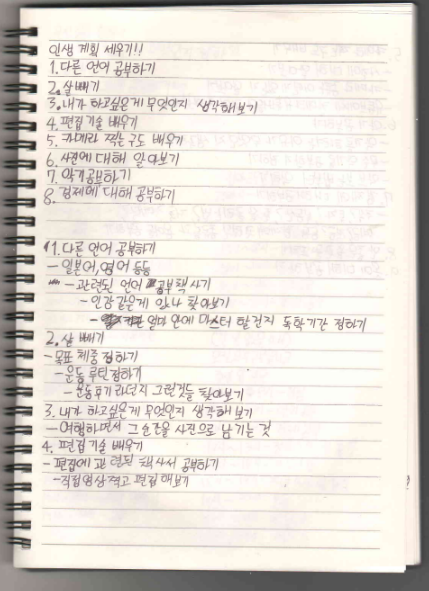 인생 계획 세우기!!
1. 다른 언어 공부하기
2. 살빼기
3. 내가 하고싶은게 무엇인지 생각해보기
4. 편집 기술 배우기
5. 카메라 찍는 구도 배우기
6. 사진에 대해 알아보기
7. 악기공부하기
8. 경제에 대해 공부하기
1. 다른 언어 공부하기
- 일본어, 영어 등등
- 관련된 언어 공부책 사기
- 인강 같은게 있나 찾아보기
- 얼마 안에 마스터 할건지 독학기간 정하기
2. 살 빼기
- 목표 체중 정하기
- 운동 루틴 정하기
- 운동후기라던지 그런것들 찾아보기
3. 내가 하고싶은게 무엇인지 생각해 보기
- 여행하면서 그 순간을 사진으로 남기는 것
4. 편집 기술 배우기
- 편집에 관련된 책사서 공부하기
- 직접 영상 찍고 편집 해보기